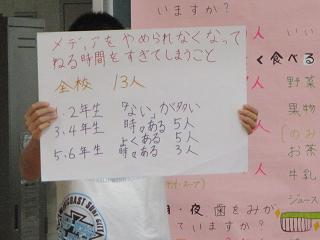 メディアをやめられなくなって
ねる時間をすぎてしまうこと
全校 13人
1.2年生 「ない」が多い
3.4年生 時々ある 5人
よくある 5人
5.6年生 時々ある 3人
いますか？
人
いい
く食べる
野菜
果物
人
お茶
人
牛乳
ジュース
・夜、歯をみが
ていますか？